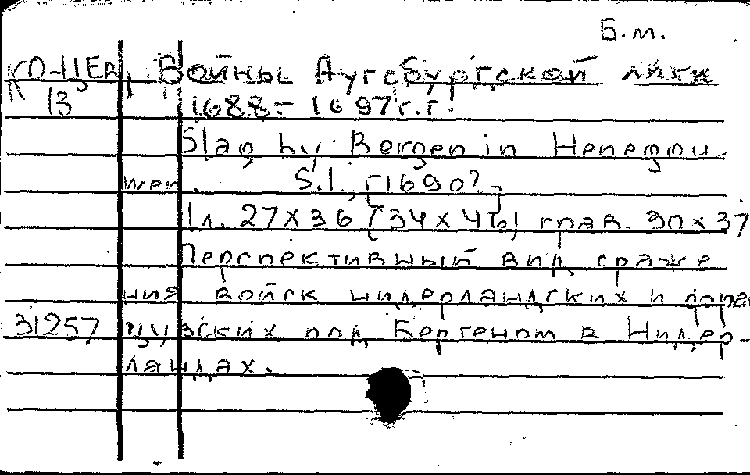 Б.м.
КО-ЦЕР, Войны Аугсбургской лиги
13 1688-1697 г.г.
Slag by Bergen in Henegou-
wen. S.l., [1690?].
1 л. 27х36 (34х46) грав. 30х37
Перспективный вид сраже
ния войск нидерландских и фран
31257 цузских под Бергеном в Нидер-
ландах.